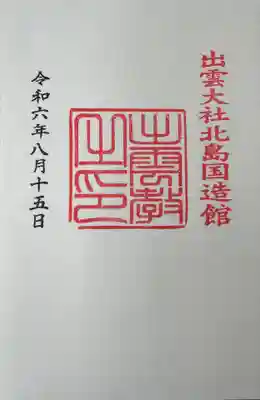 出雲大社北島国造館
出雲教
之印
令和六年八月十五日